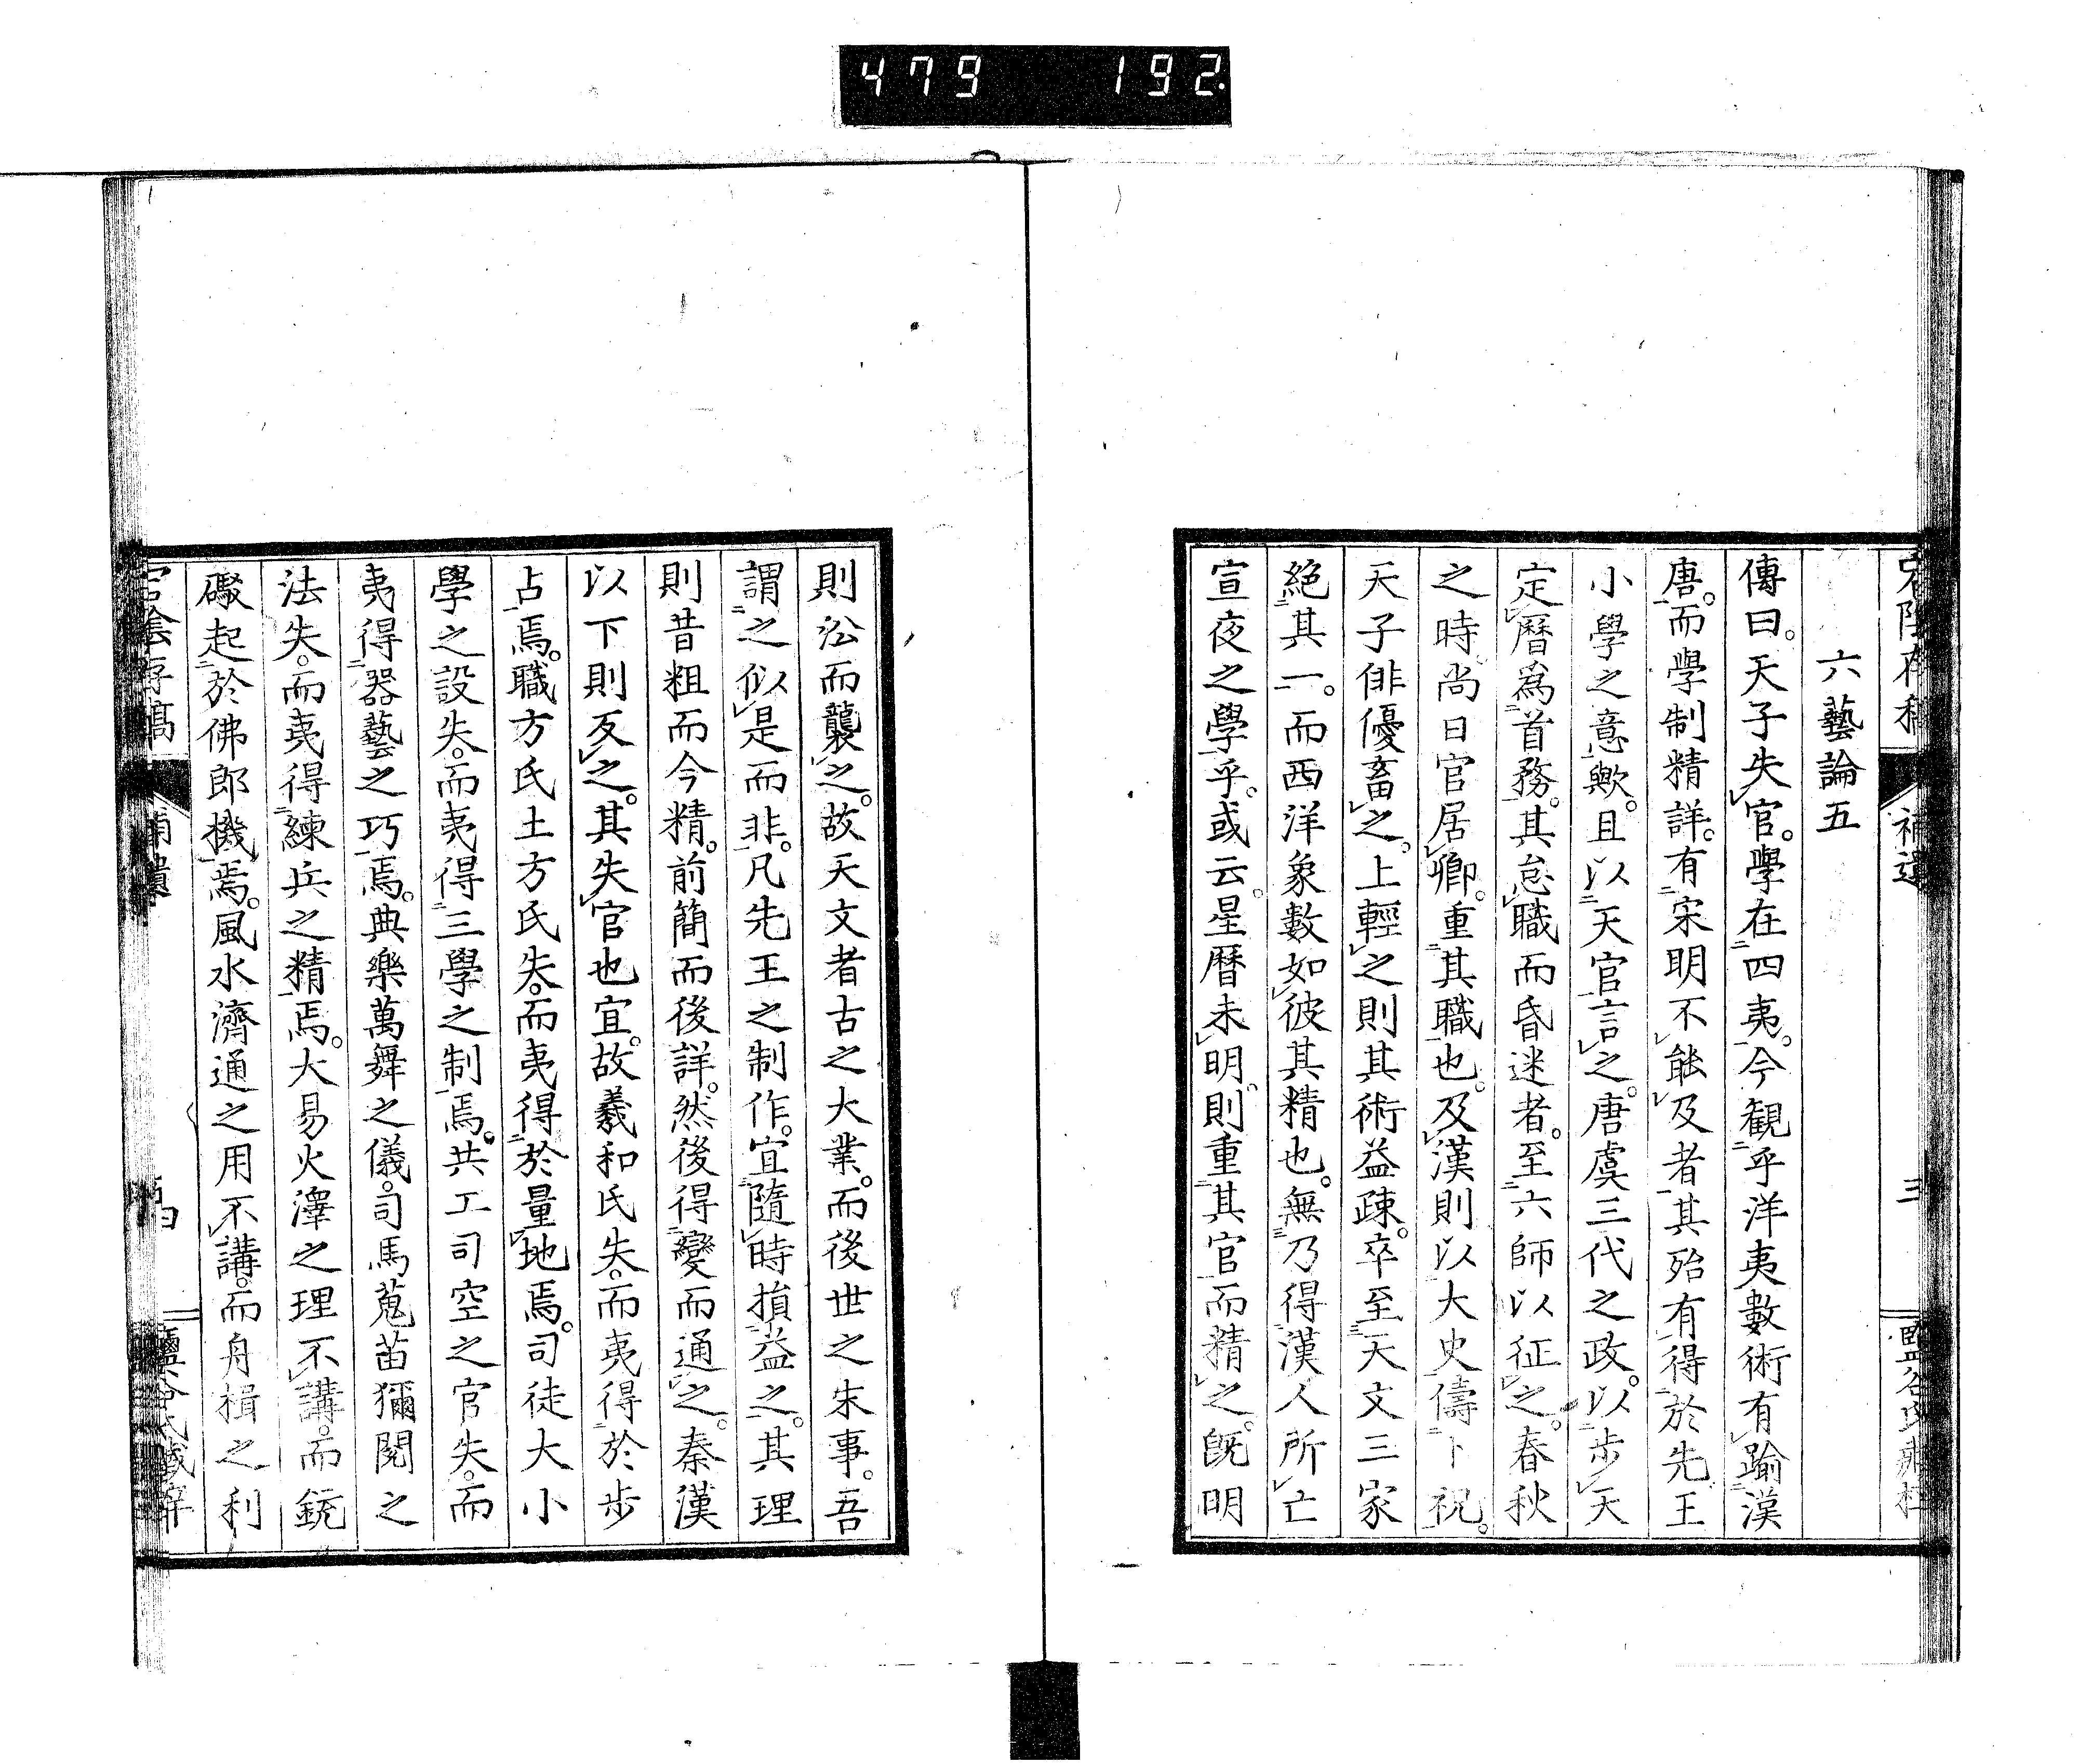 479 192
六藝論五
傳曰。天子失官。學在四夷。今観乎洋夷數術有踰漢
唐。而學制精詳。有宋明不能及者。其殆有得於先王
小學之意歟。且以天官言之。唐虞三代之政。以步天
定曆為首務。其怠職而昏迷者。至六師以征之。春秋
之時。尚日官居卿。重其職也。及漢則以大史儔卜祝。
天子俳優畜之。上輕之則其術益疎。卒至天文三家
絕其一。而西洋象數如彼其精也。無乃得漢人所亡
宣夜之學乎。或云。星曆未明。則重其官而精之。既明
則㳂而襲之。故天文者古之大業。而後世之末事。吾
謂之似是而非。凡先王之制作。宜隨時損益之。其理
則昔粗而今精。前簡而後詳。然後得變而通之。秦漢
以下則反之。其失官也宜。故羲和氏失。而夷得於步
占焉。職方氏土方氏失。而夷得於量地焉。司徒大小
學之設失。而夷得三學之制焉。共工司空之官失。而
夷得器藝之巧焉。典樂萬舞之儀。司馬蒐苗獮閱之
法失。而夷得練兵之精焉。大易火澤之理不講。而銃
礮起於佛郎機焉。風水濟通之用不講。而舟楫之利
宕陰存稿 補遺 三
宕陰存稿 補遺 四